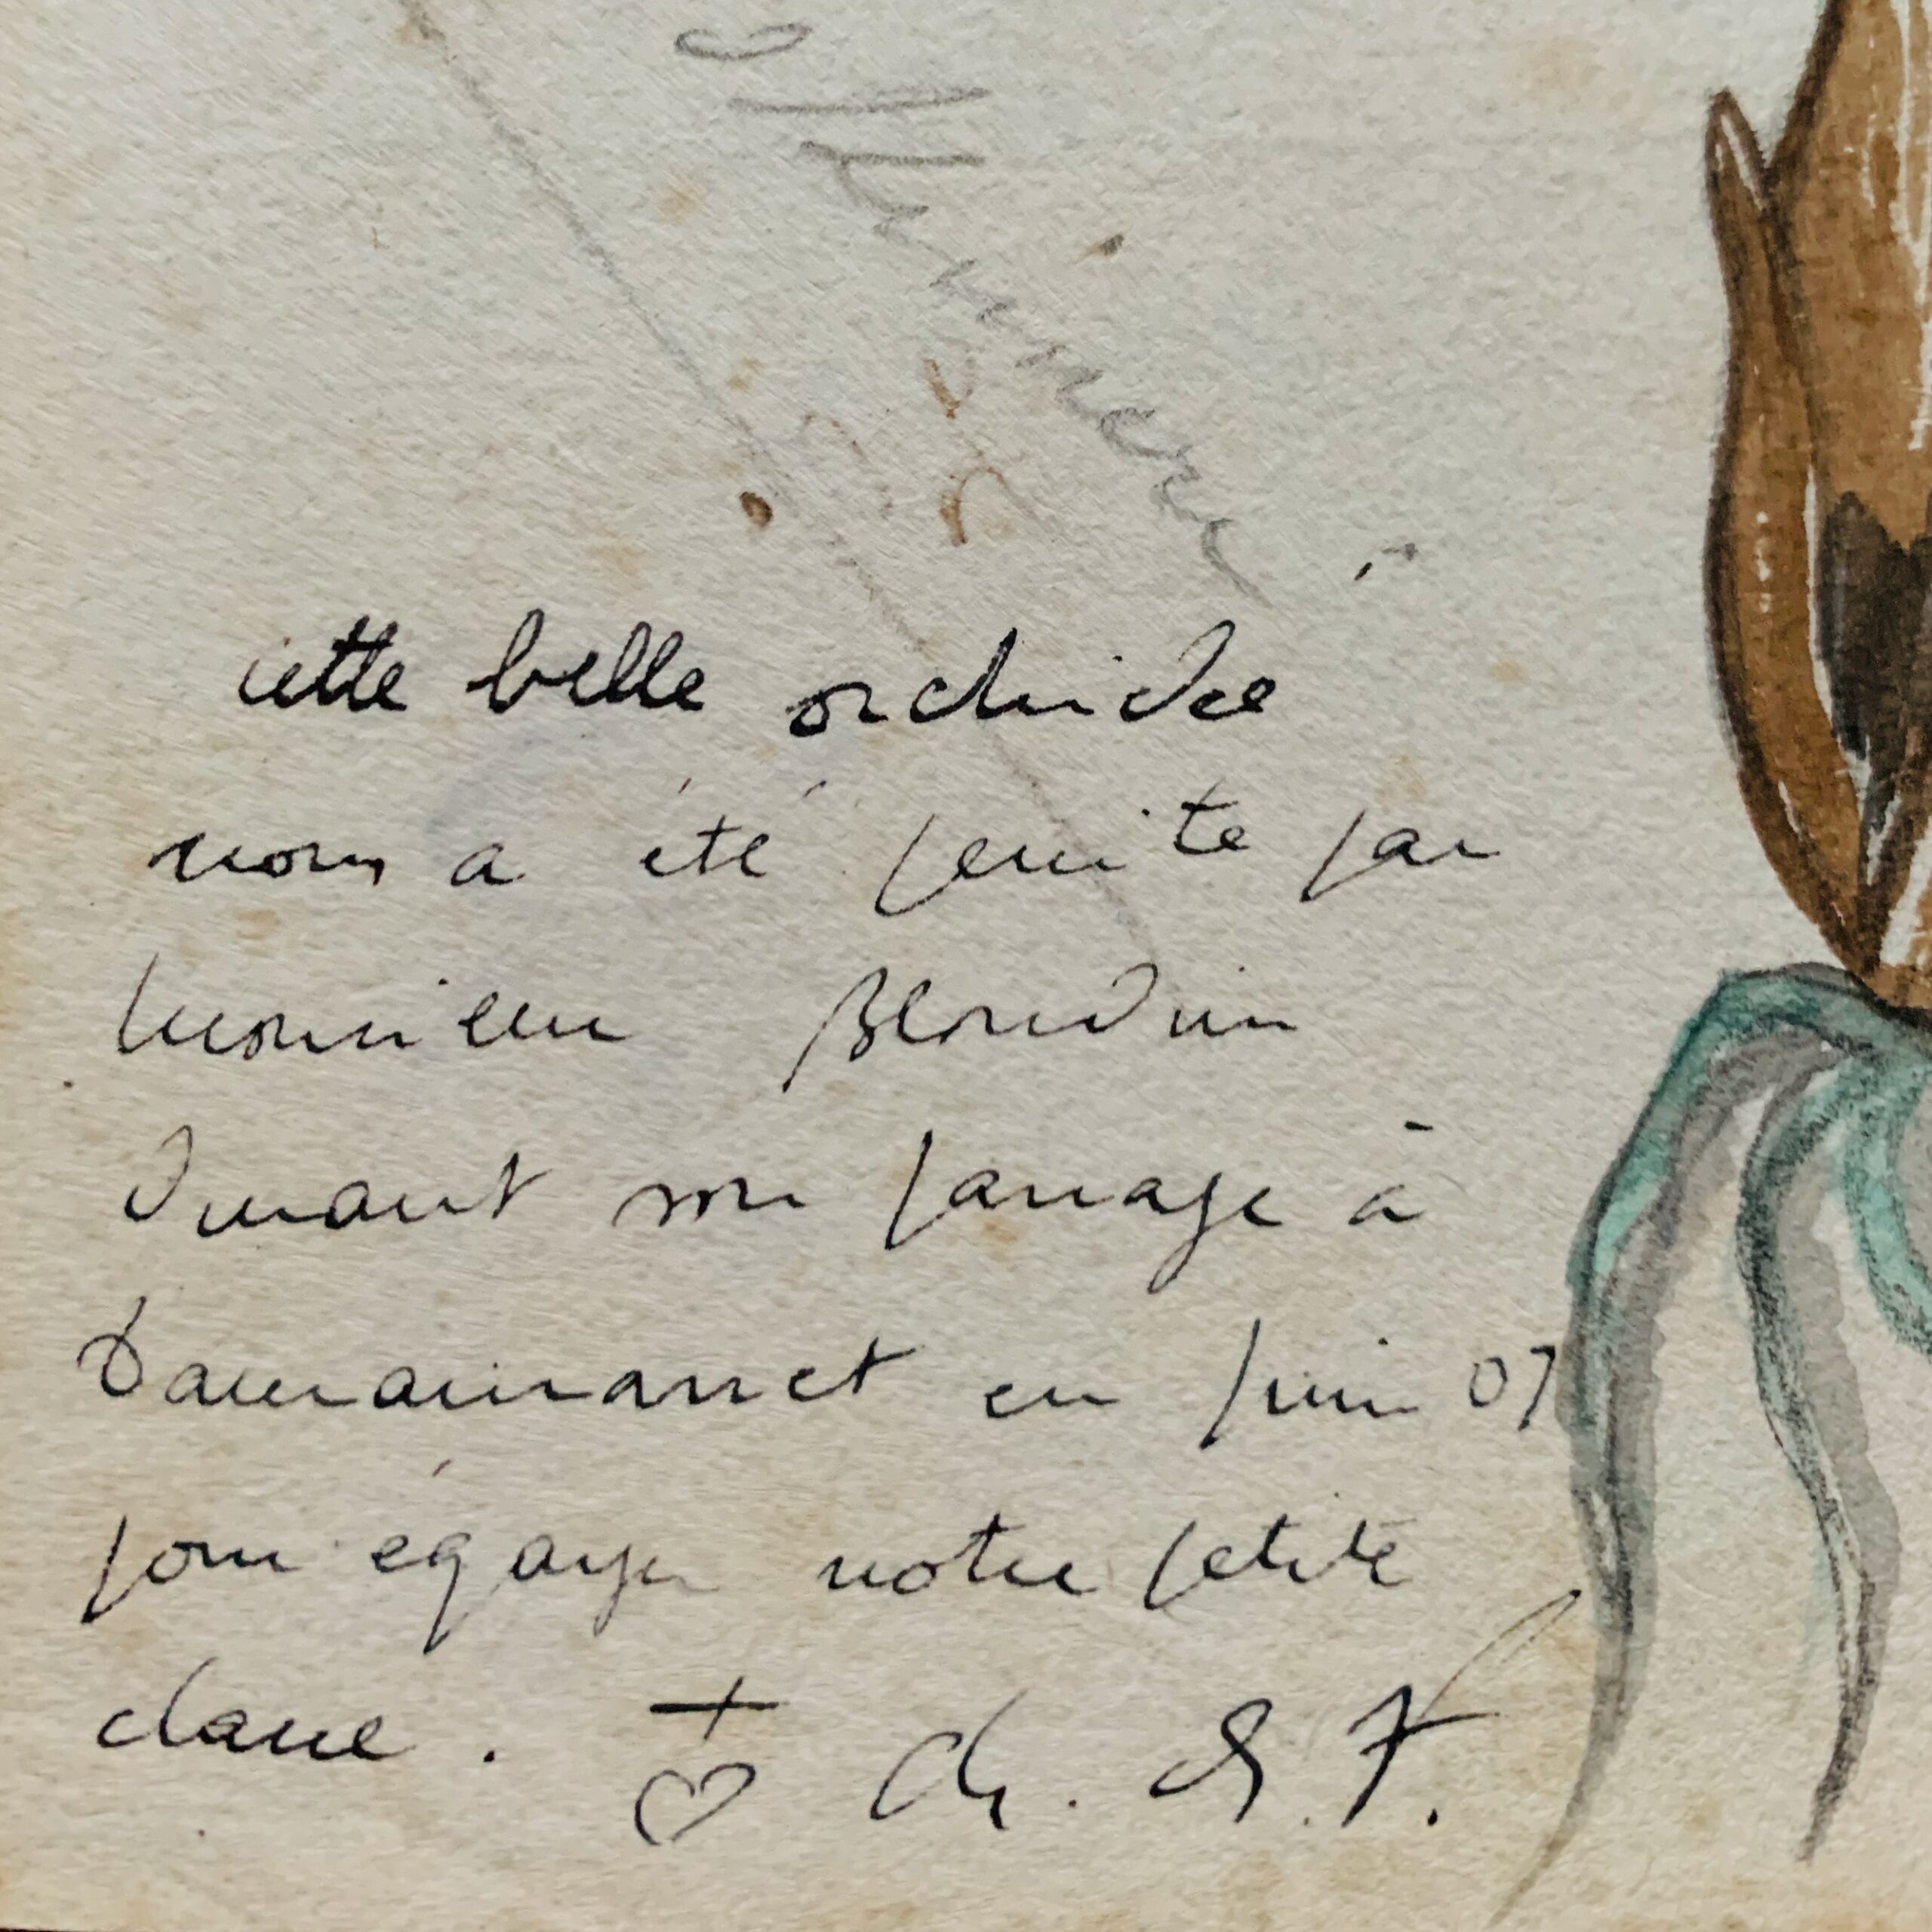 cette belle orchidée
nous a été peinte par
Monsieur Blondin
durant son passage à
Tamanrasset en Juin 07
pour égayer notre petite
classe. Ch. d. F.